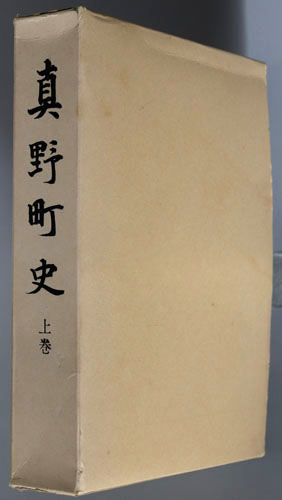 真野町史
上巻